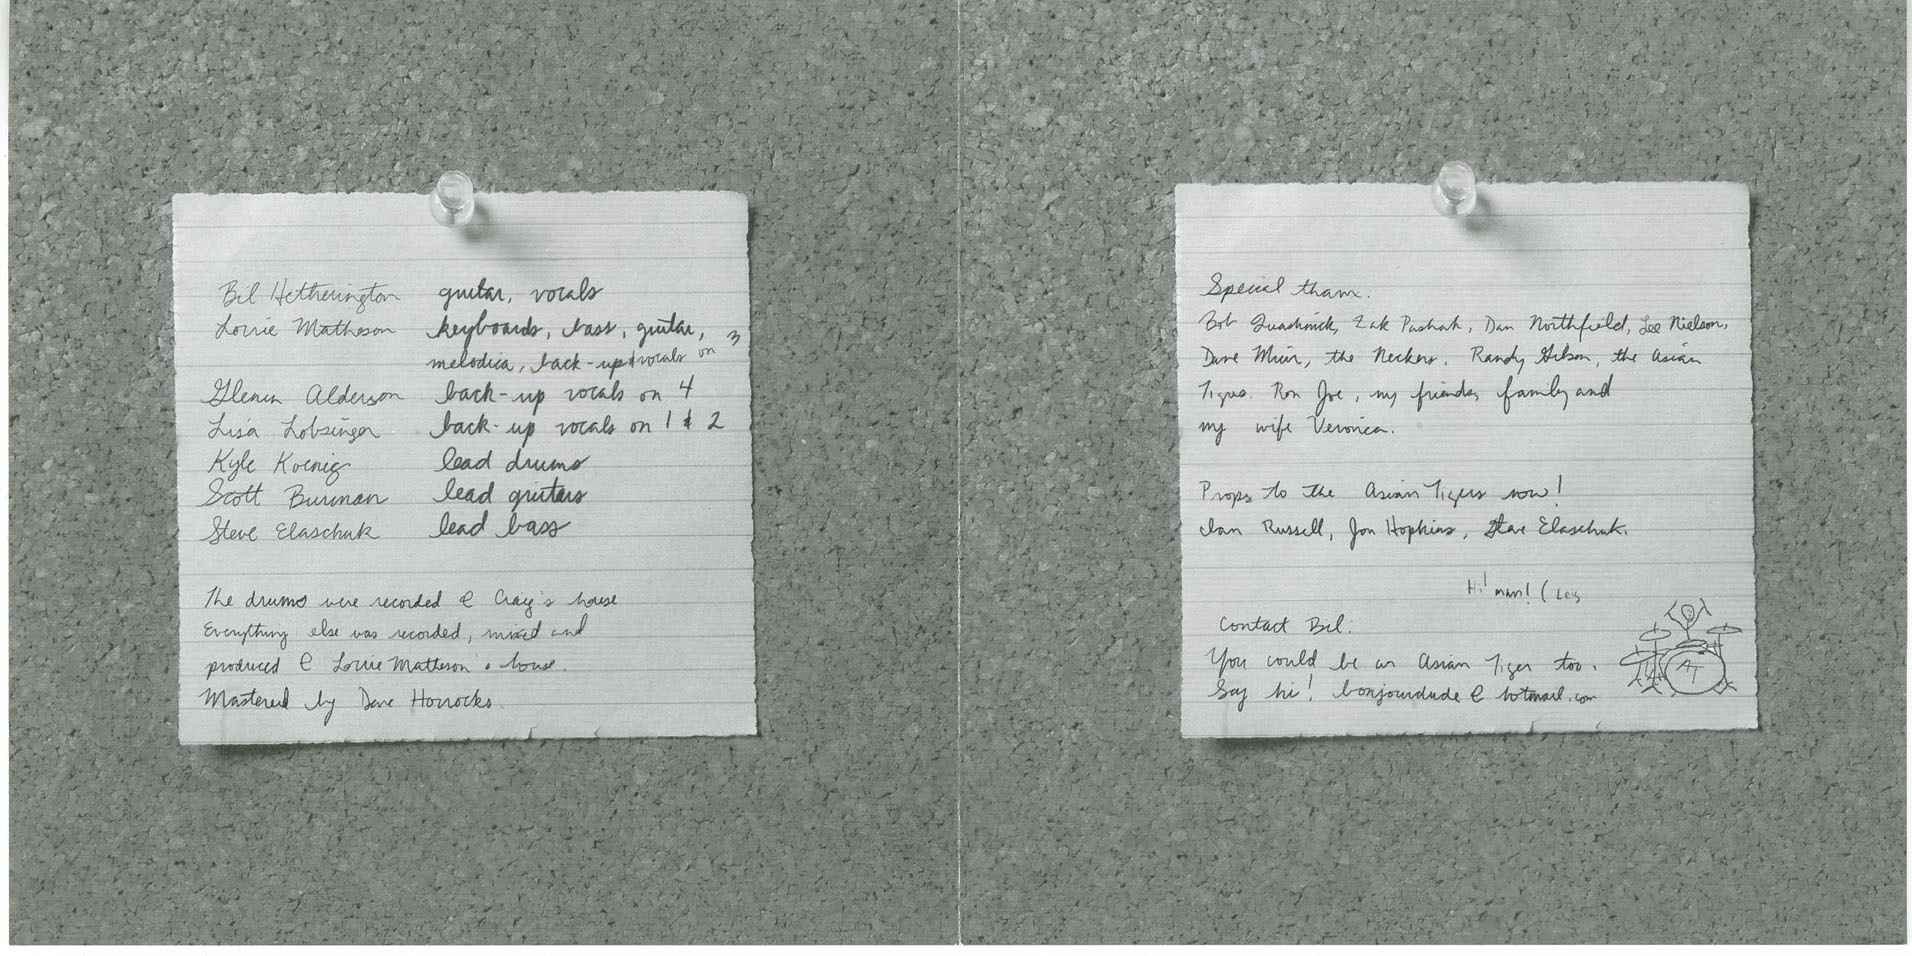 Bil Hetherington guitar, vocals
Lorrie Matheson keyboards, bass, guitar,
melodica, back-up vocals on 3
Glenn Alderson back-up vocals on 4
Lisa Lobsinger back-up vocals on 1 & 2
Kyle Koenig lead drums
Scott Burman lead guitars
Steve Elaschuk lead bass
The drums were recorded @ Craig's house
Everything else was recorded, mixed and
produced @ Lorrie Matheson's house.
Mastered by Dave Horrocks.
Special thanx.
Bob Zak Pashak, Dan Northfield, Lee Nielson,
Dave Muir, the Neckers, Randy Gibson, the Asian
Tigers. Ron Joe, my friends, family and
my wife Veronica.
Props to the Asian Tigers now!
Ian Russell, Jon Hopkins, Steve Elaschuk.
Hi! man!
Contact Bil:
You could be an Asian Tiger too.
Say hi! bonjourdude@hotmail.com
AT